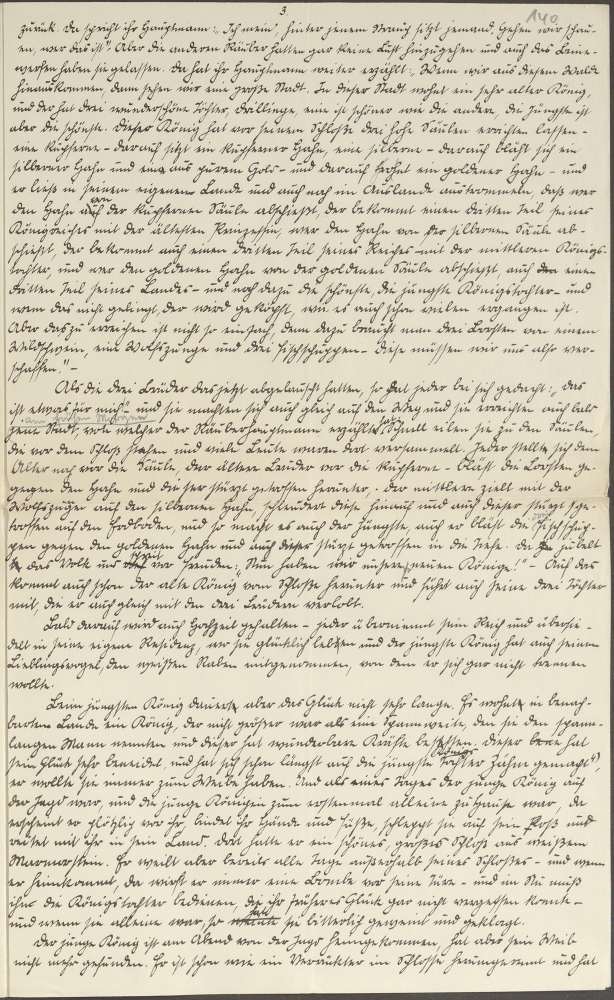 3
140
zurück. Da spricht ihr Hauptmann: "Ich mein', hinter jenem Strauch sitzt jemand. Gehen wir schau-
en, wer das ist". Aber die anderen Räuber hatten gar keine Lust hinzugehen und auch das Steine-
werfen haben sie gelassen. Da hat ihr Hauptmann weiter erzählt: "Wenn wir aus diesem Walde
hinauskommen, dann sehen wir eine große Stadt. In dieser Stadt wohnt ein sehr alter König,
und der hat drei wunderschöne Töchter, Drillinge, eine ist schöner wie die andere, die Jüngste ist
aber die schönste. Dieser König hat vor seinem Schloße drei hohe Säulen errichten lassen -
eine kupferne - darauf sitzt ein kupferner Hahn, eine silberne - darauf bläht sich ein
silberner Hahn und eine aus purem Gold - und darauf thront ein goldener Hahn - und
er ließ in seinem eigenen Lande und auch noch im Auslande austrommeln, daß wer
den Hahn von der kupfernen Säule abschießt, der bekommt einen dritten Teil seines
Königreiches mit der ältesten Prinzessin, wer den Hahn von der silbernen Säule ab-
schießt, der bekommt auch einen dritten Teil seines Reiches mit der mittleren Königs-
tochter, und wer den goldenen Hahn von der goldenen Säule abschießt, auch einen
dritten Teil seines Landes - und noch dazu die schönste, die jüngste Königstochter - und
wem das nicht gelingt, der wird geköpft, wie es auch schon vielen ergangen ist.
Aber das zu erreichen ist nicht so einfach, denn dazu braucht man drei Borsten von einem
Wildschwein, eine Wolfszunge und drei Fischschuppen. - Diese müssen wir uns also ver-
schaffen." -
Als die drei Brüder das jetzt abgelauscht hatten, so hat jeder bei sich gedacht: "das
ist etwas für mich" - und sie machten sich auch gleich auf den Weg und sie erreichten auch bald
jene Stadt, von welcher der Räuberhauptmann erzählt hat. Schnell eilen sie zu den Säulen,
die vor dem Schloß stehen und viele Leute waren dort versammelt. Jeder stellte sich dem
Alter nach vor die Säule, der ältere Bruder vor die kupferne - bläst die Borsten ge-
gegen den Hahn und dieser stürzt getroffen herunter; - der mittlere zielt mit der
Wolfszunge auf den silbernen Hahn, schleudert diese hinauf und auch dieser stürzt ge-
troffen auf den Erdboden, und so macht es auch der Jüngste, auch er bläst die Fischschup-
pen gegen den goldenen Hahn und auch dieser stürzt getroffen in die Tiefe. Da jubelt
das Volk und vor Freuden: "Nun haben wir unsere neuen Könige!" - Auch das
kommt auch schon der alte König vom Schloße herunter und führt auch seine drei Töchter
mit, die er auch gleich mit den drei Brüdern verlobt.
Bald darauf wird auch Hochzeit gehalten - jeder übernimmt sein Reich und übersie-
delt in seine eigene Residenz, wo sie glücklich lebten und der jüngste König hat auch seinen
Lieblingsvogel, den weißen Raben mitgenommen, von dem er sich gar nicht trennen
wollte.
Beim jüngsten König dauerte aber das Glück nicht sehr lange. Es wohnte in benach-
barten Lande ein König, der nicht größer war als eine Spannweite, den sie den spann-
langen Mann nannten und dieser hat wunderbare Kräfte besessen. Dieser hat
sein Glück sehr beneidet, und hat sich schon längst auf die jüngste Königs Tochter Zähne gemacht,
er wollte sie immer zum Weibe haben. Und als eines Tages der junge König auf
der Jagd war, und die junge Königin zum erstenmal alleine zuhause war, da
erscheint er plötzlich vor ihr, bindet ihr Hände und Füße, schleppt sie auf sein Roß und
reitet mit ihr in sein Land. Dort hatte er ein schönes, großes Schloß aus weißem
Marmorstein. Er weilt aber bereits alle Tage außerhalb seines Schlosses - und wenn
er heimkommt, da wirft er immer eine Bombe vor seine Türe - und im Nu muß
ihm die Königstochter bedienen, die ihr früheres Glück gar nicht vergessen konnte -
und wenn sie alleine war, so hat sie bitterlich geweint und geklagt.
Der junge König ist am Abend von der Jagd heimgekommen, hat aber sein Weib
nicht mehr gefunden. Er ist schon wie ein Verrückter im Schlosse herumgerannt und hat